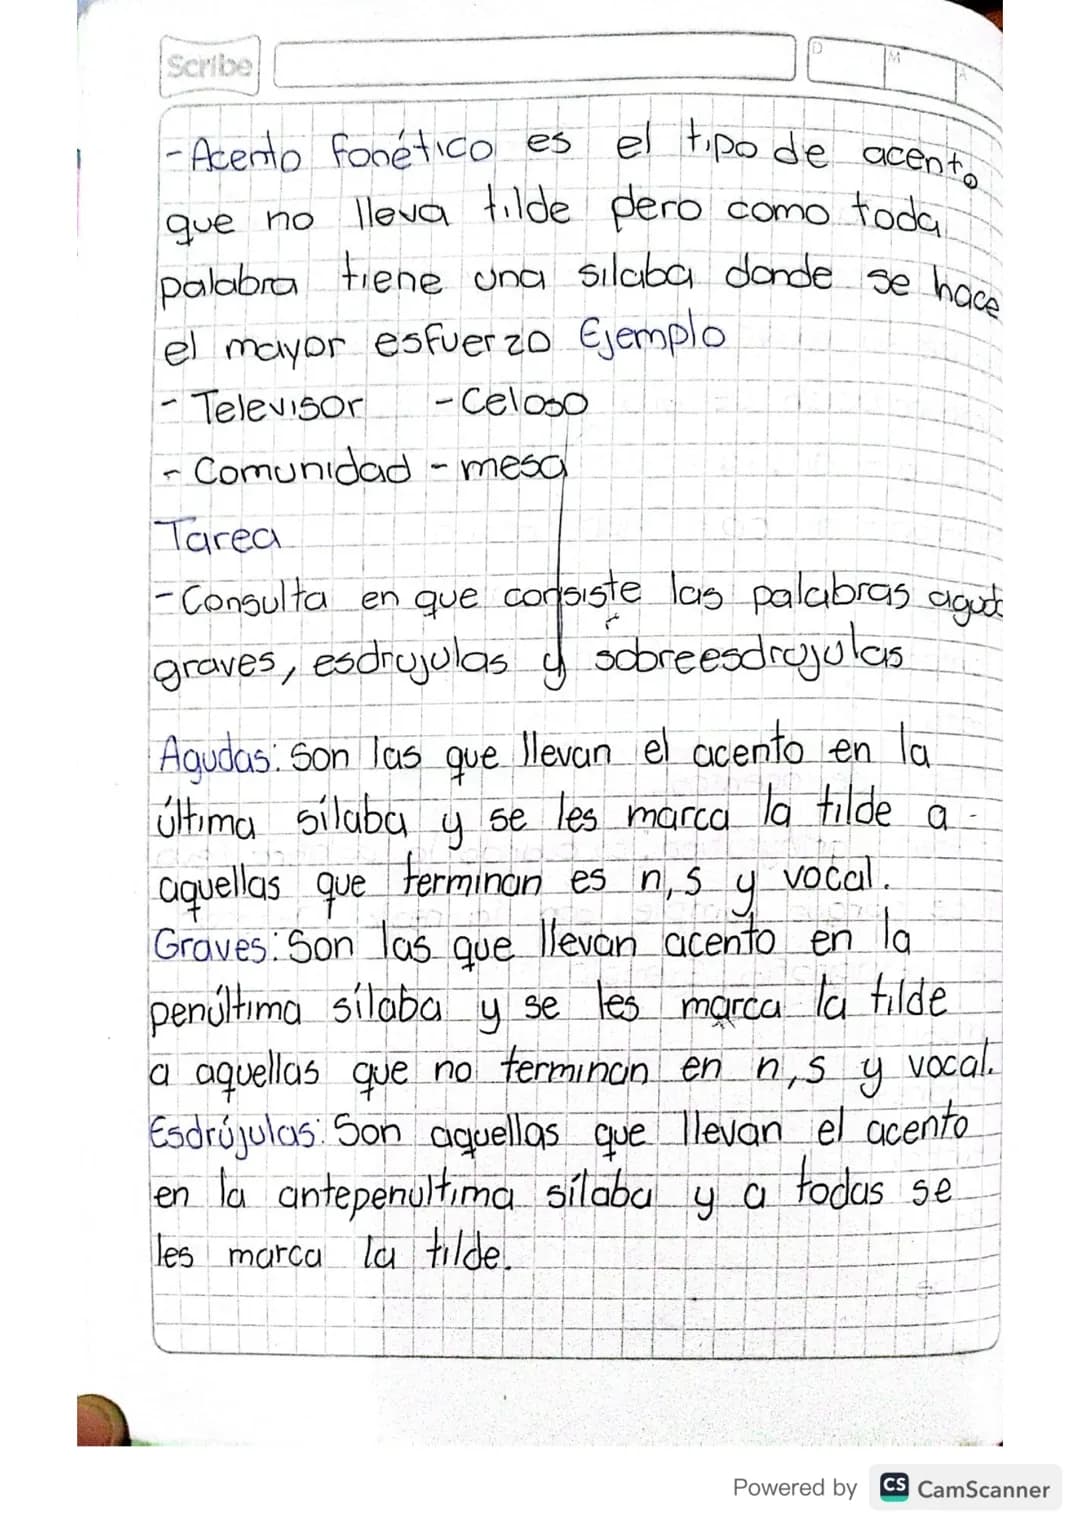 Scribe
D M A
- Acento fonético es el tipo de acento
que no lleva tilde pero como toda
palabra tiene una silaba donde se hace
el mayor esfuerzo Ejemplo
- Televisor - Celoso
- Comunidad - mesa
Tarea
- Consulta en que consiste las palabras agud
graves, esdrujulas y sobreesdrujulas
Agudas: Son las que llevan el acento en la
última sílaba y se les marca la tilde a
aquellas que terminan es n, s y vocal.
Graves: Son las que llevan acento en la
penúltima sílaba y se les marca la tilde
a aquellas que no terminan en n, s y vocal.
Esdrújulas: Son aquellas que llevan el acento
en la antepenultima sílaba y a todas se
les marca la tilde.
Powered by CS CamScanner